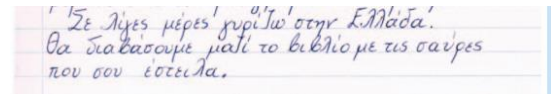 Σε λίγες μέρες γυρίζω στην Ελλάδα.
Θα διαβάσουμε μαζί το βιβλίο με τις σαύρες
που σου έστειλα.